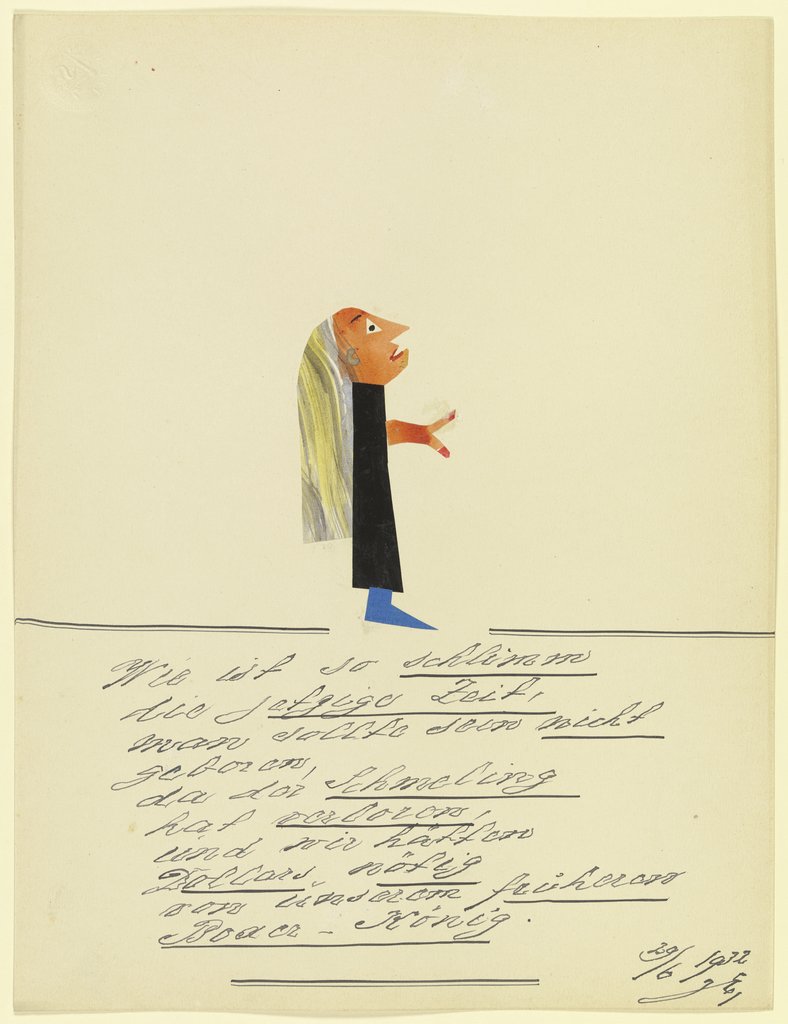 Wie ist so schlimm
die jetzige Zeit,
man sollte sein nicht
geboren,
da der Schmeling
hat verloren,
und wir hätten
Dollars nötig
von unserem früheren
Boxer - König.
29/6 1932